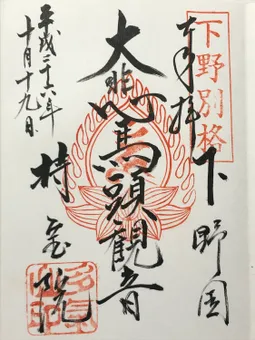 下野別格
奉拝 下野国
大悲 馬頭観音
持宝院
平成二十六年
十月十九日